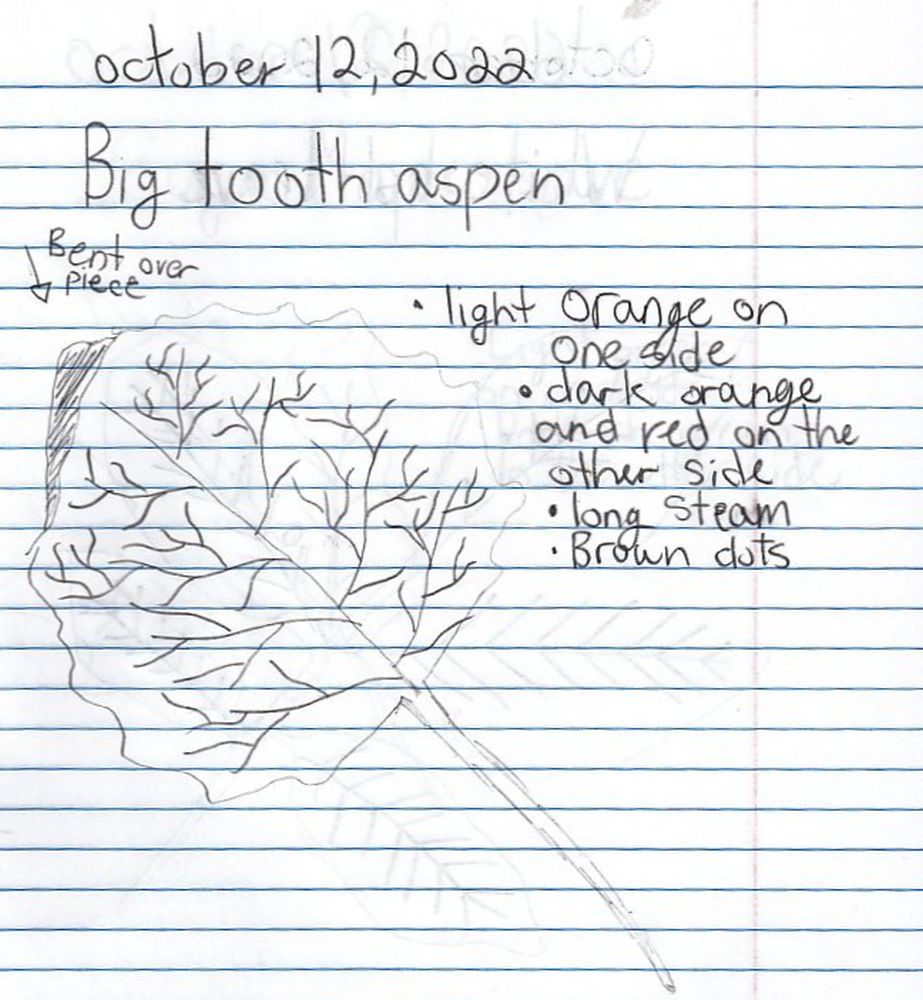 october 12, 2022
Big tooth aspen
Bent over
piece
• light orange on
one side
• dark orange
and red on the
other side
• long steam
• Brown dots